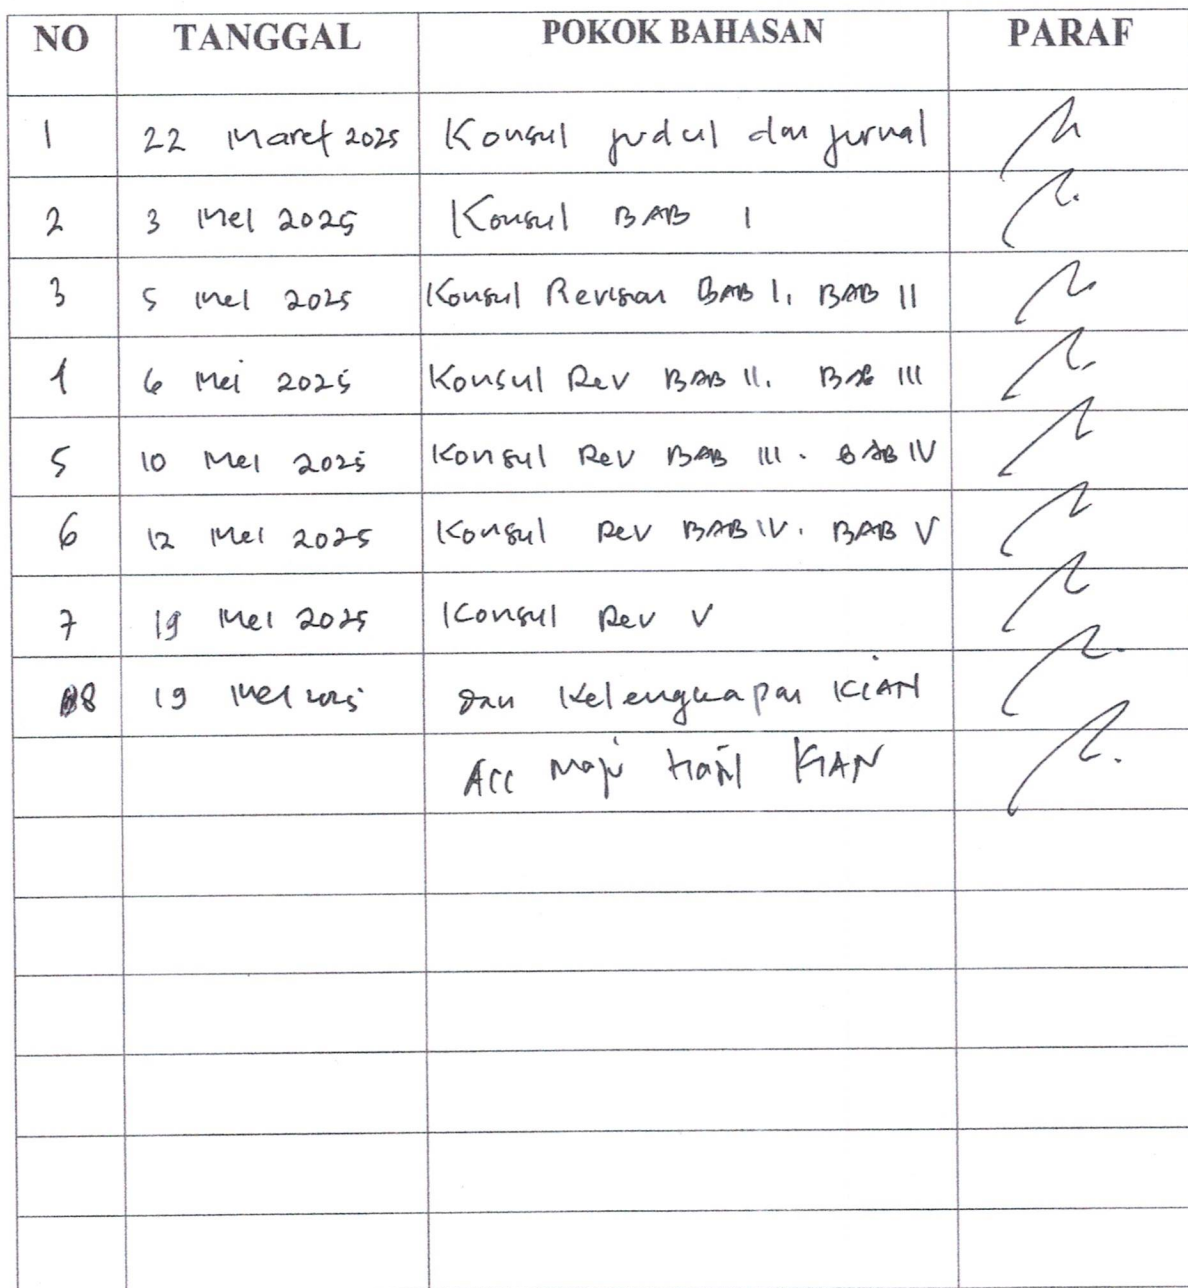 NO TANGGAL POKOK BAHASAN PARAF
1 22 Maret 2025 Konsul judul dan jurnal
2 3 Mei 2025 Konsul BAB I
3 5 Mei 2025 Konsul Revisan BAB I, BAB II
4 6 Mei 2025 Konsul Rev BAB II. BAB III
5 10 Mei 2025 Konsul Rev BAB III. BAB IV
6 12 Mei 2025 Konsul Rev BAB IV. BAB V
7 19 Mei 2025 Konsul Rev V
8 19 Mei 2025 dan Kelengkapan KIAN
Acc Maju Hasil KIAN